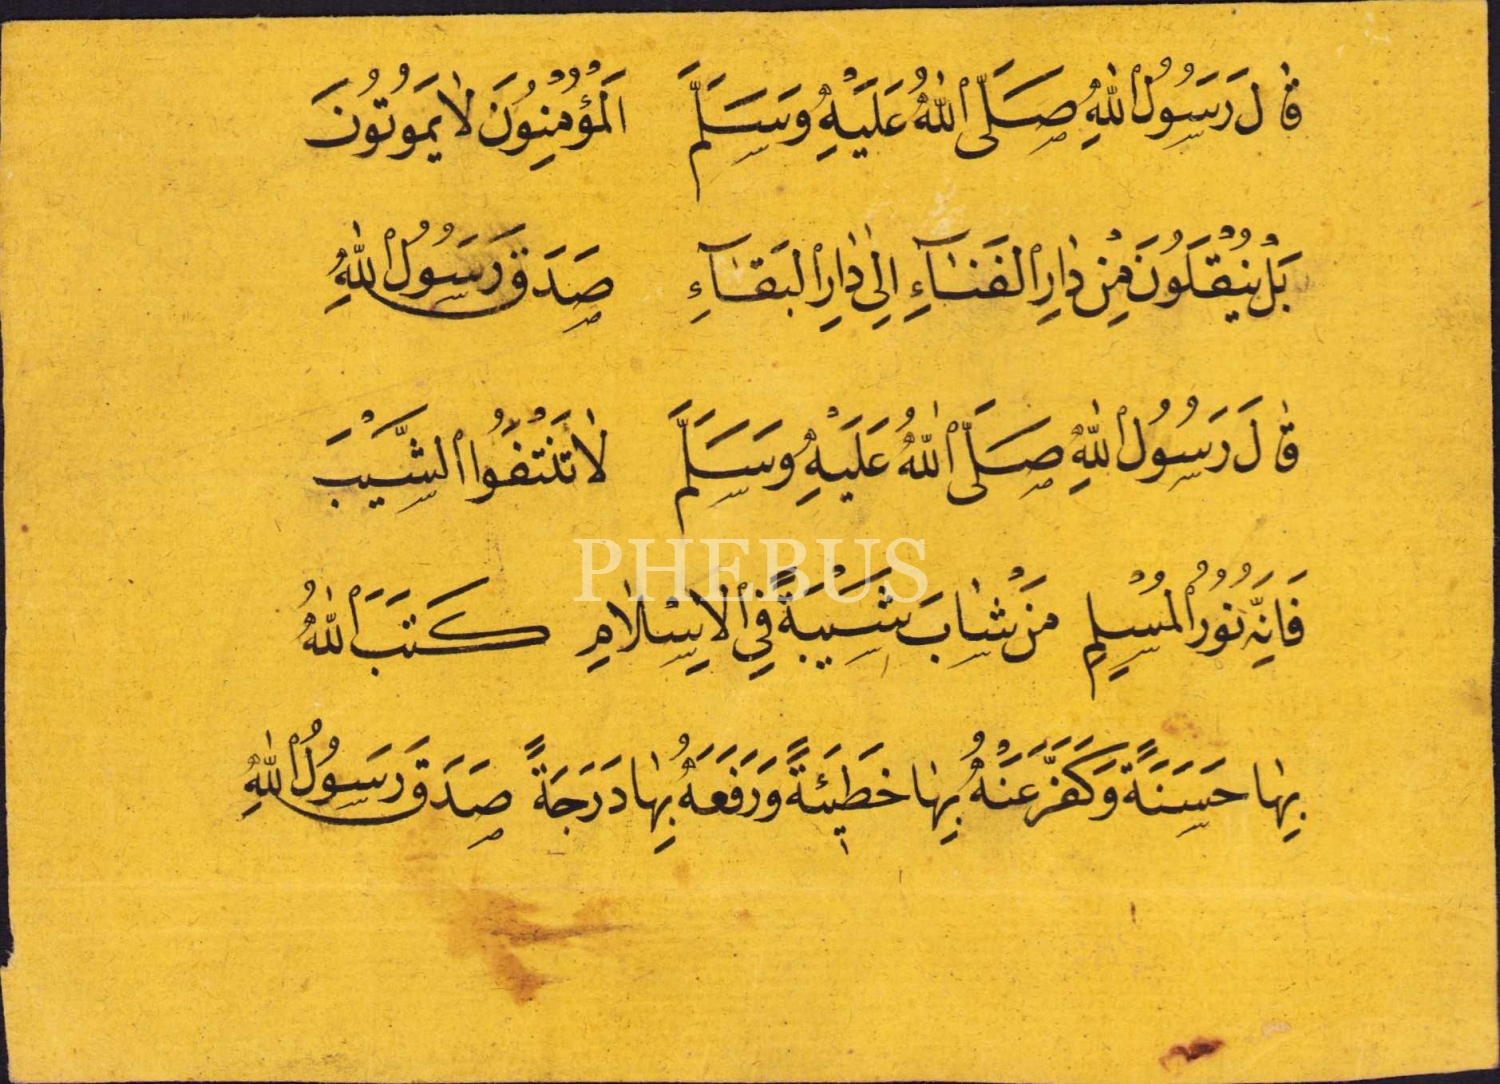 قَالَ رَسُولُ اللهِ صَلَّى اللهُ عَلَيْهِ وَسَلَّمَ اَلْمُؤْمِنُونَ لَا يَمُوتُونَ
بَلْ يُنْقَلُونَ مِنْ دَارِ الْفَنَاۤءِ اِلٰى دَارِ الْبَقَاۤءِ صَدَقَ رَسُولُ اللهِ
قَالَ رَسُولُ اللهِ صَلَّى اللهُ عَلَيْهِ وَسَلَّمَ لَا تَنْتِفُوا الشَّيْبَ
PHEBUS
فَاِنَّهُ نُورُ الْمُسْلِمِ مَنْ شَابَ شَيْبَةً فِي الْاِسْلَامِ كَتَبَ اللهُ
بِهَا حَسَنَةً وَكَفَّرَ عَنْهُ بِهَا خَطِيْئَةً وَرَفَعَهُ بِهَا دَرَجَةً صَدَقَ رَسُولُ اللهِ